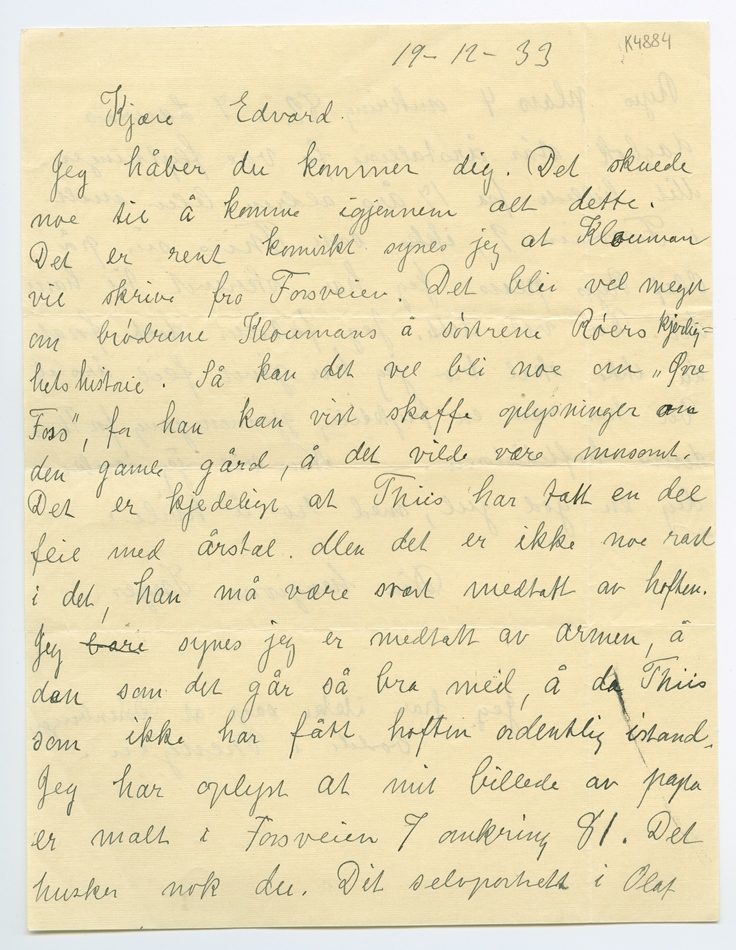 19-12-33
K4884
Kjære Edvard.
Jeg håber du kommer dig. Det skuede
noe til å komme igjennem alt dette.
Det er rent komiskt synes jeg at Klouman
vil skrive fra Fossveien. Det blir vel meget
om brödrene Kloumans å söstrene Röers kjerlig=
hets historie. Så kan det vel bli noe om „Øvre
Foss", for han kan vist skaffe oplysninger om
den gamle gård, å det vilde være morsomt.
Det er kjedeligt at Thiis har tatt en del
feil med årstal. Men det er ikke noe rart
i det, han må være svært medtatt av hoften.
Jeg bare synes jeg er medtatt av armen, å
den som det går så bra med, å da Thiis
som ikke har fått hoften ordentlig istand.
Jeg har oplyst at mit billede av papa
er malt i Fossveien 7 omkring 81. Det
husker nok du. Dit selvportrett i Olaf